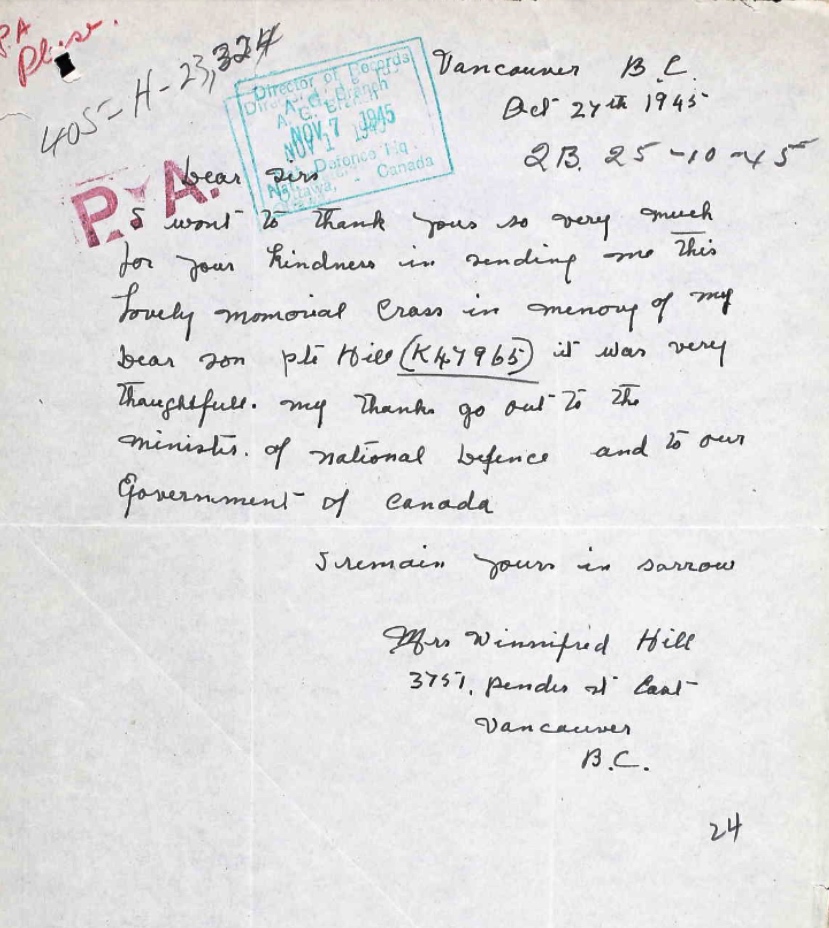 P.A
Please.
405-H-23,324
Director of Records
A. G. Branch
NOV 7 1945
NOV 1 1945
Nat. Defence Hq
Ottawa, - Canada
P.A.
Vancouver B.C.
Oct 27th 1945
2B. 25-10-45
Dear Sirs
I want to thank yous so very much
for your kindness in sending me this
Lovely momorial Cross in menory of my
Dear son pte Hill (K47965) it was very
thaughtfull. my thanks go out to the
minister. of national Defence and to our
Government of Canada
I remain yours in sorrow
Mrs Winnifred Hill
3751. Pender St East
Vancouver
B.C.
24